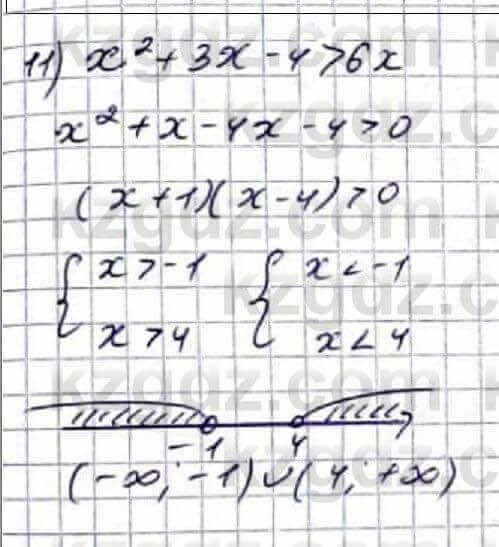 11) x² + 3x - 4 > 6x
x² + x - 4x - 4 > 0
(x + 1)(x - 4) > 0
{ x > -1 { x < -1
{ x > 4 { x < 4
-1 4
(-∞; -1) ∪ (4; +∞)
kzgdz.com